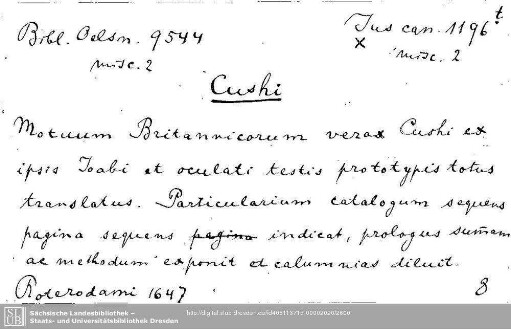 Bibl. Oelsn. 9544
misc. 2
Jus can. 1196 t
x
misc. 2
Cushi
Motuum Britannicorum verax Cushi ex
ipsis Joabi et oculati testis prototypis totus
translatus. Particularium catalogum sequens
pagina sequens pagina indicat, prologus summam
ac methodum exponit et calumnias diluit.
Roterodami 1647
8
SLUB
Sächsische Landesbibliothek –
Staats- und Universitätsbibliothek Dresden